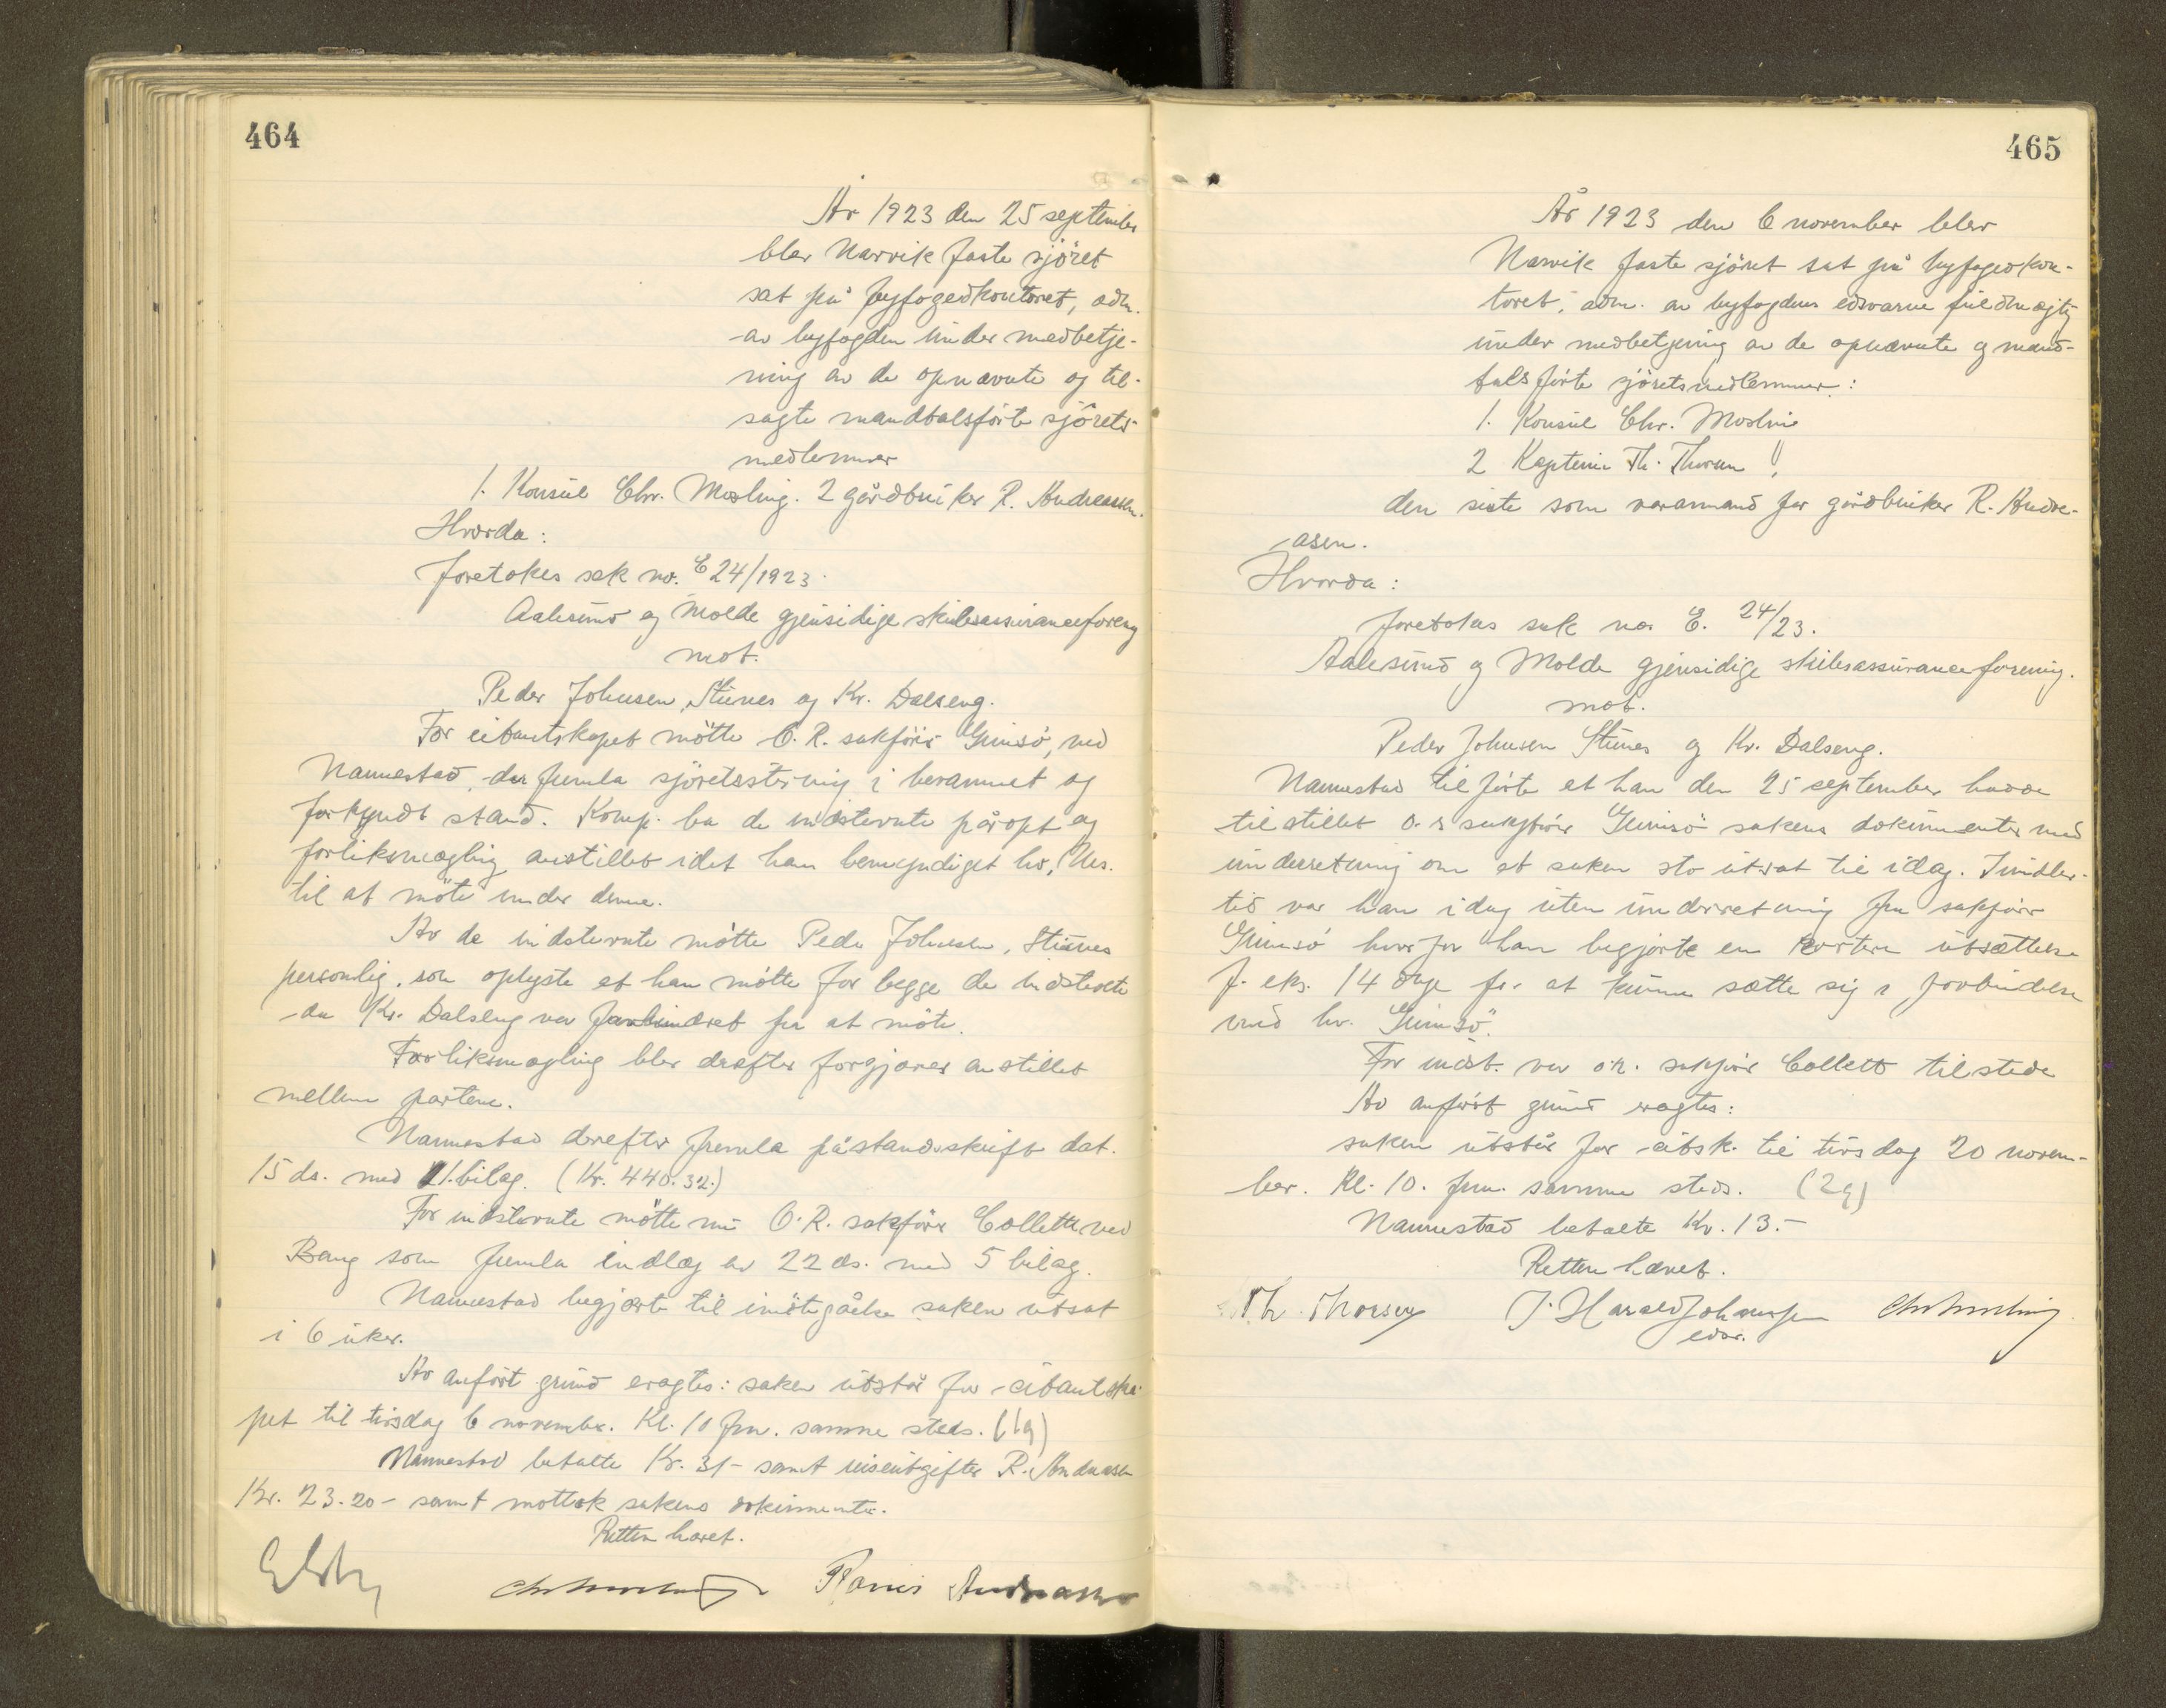 464
År 1923 den 25 september
blev Narvik faste sjöret
sat på byfogedkontoret, adm.
av byfogden under medbetje-
ning av de opnævnte og til-
sagte mandtalsförte sjörets-
medlemmer
1. Konsul Chr. Mosling. 2 gårdbruker R. Andreassen.
Hvorda:
foretokes sak no. E 24/1923.
Aalesund og Molde gjensidige skibsassuranceforeng
mot.
Peder Johnsen, Stunes og Kr. Dalseng.
For citantskapet mötte O. R. sakförer Grimsö, ved
Nannestad, der fremla sjöretsstevning i berammet og
forkyndt stand. Komp. ba de indstevnte påropt og
forliksmægling anstillet idet han bemyndiget hr.
til at möte under denne.
Av de indstevnte mötte Peder Johnsen, Stunes
personlig, som oplyste at han mötte for begge de indstevnte
da Kr. Dalseng var forhindret fra at möte.
Forliksmægling blev derefter forgjæves anstillet
mellem partene.
Nannestad derefter fremla påstandsskrift dat.
15 ds. med 11. bilag. (Kr. 440.32.)
For indstevnte mötte nu O. R. sakförer Collett ved
Bang som fremla indlæg av 22 ds. med 5 bilag.
Nannestad begjærte til imötegåelse saken utsat
i 6 uker.
Av anfört grund eragtes: saken utstår for citantska-
pet til tirsdag 6 november. Kl. 10 fm. samme steds. (1g)
Nannestad betalte Kr. 31- samt reiseutgifter R. Andreasen
Kr. 23.20- samt mottok sakens dokumenter.
Retten hævet.
Chr Mosling Andreassen
465
År 1923 den 6 november blev
Narvik faste sjöret sat på byfogedkon-
toret, adm. av byfogdens edsvorne fuldmægtig
under medbetjening av de opnævnte og mand-
talsförte sjöretsmedlemmer:
1. Konsul Chr. Mosling
2 Kaptein Th. Thorsen
den siste som varamand for gårdbruker R. Andre-
asen.
Hvorda:
foretokes sak no. E. 24/23.
Aalesund og Molde gjensidige skibsassuranceforening.
mot.
Peder Johnsen Stunes og Kr. Dalseng.
Nannestad tilförte at han den 25 september hadde
tilstillet o.r sakförer Grimsö sakens dokumenter med
underretning om at saken sto utsat til idag. Imidler-
tid var han idag uten underretning fra sakförer
Grimsö hvorfor han begjærte en kortere utsættelse
f. eks. 14 dage for at kunne sætte sig i forbindelse
med hr. Grimsö.
For indst. var o.r. sakförer Collett tilstede
Av anfört grund eragtes:
saken utstår for citsk. til tirsdag 20 novem-
ber. Kl. 10. fm. samme steds. (2g)
Nannestad betalte Kr. 13.-
Retten hævet.
Th. Thorsen J. Harald Johannessen Chr Mosling
edsv.